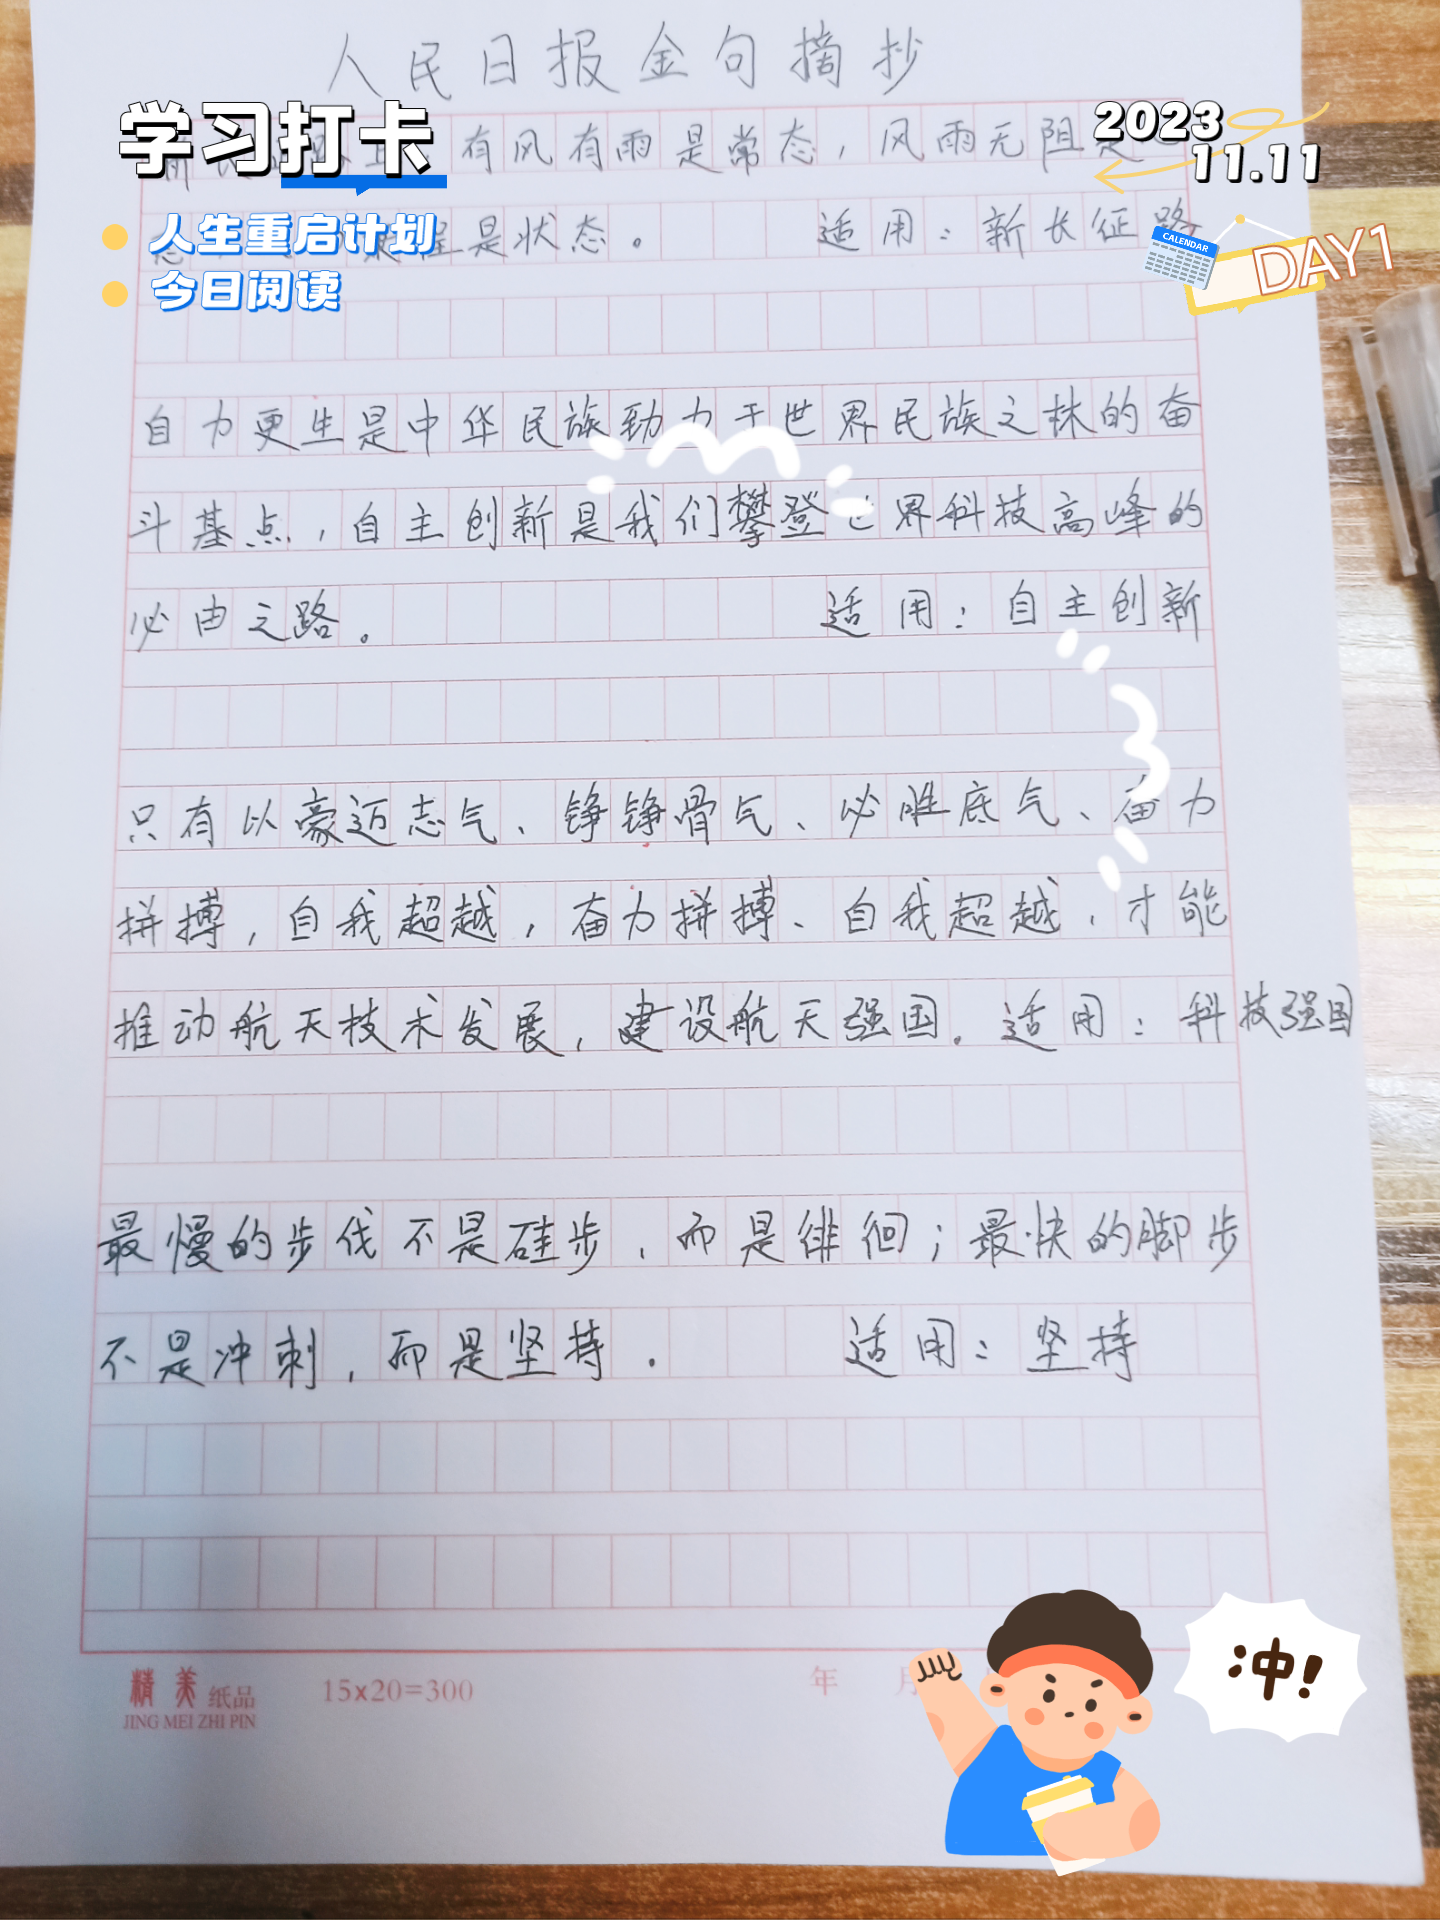 人民日报金句摘抄
学习打卡
2023
11.11
有风有雨是常态，风雨无阻是
人生重启计划
是状态。 适用：新长征路
今日阅读
CALENDAR
DAY1
自力更生是中华民族劲力于世界民族之林的奋
斗基点，自主创新是我们攀登世界科技高峰的
必由之路。 适用：自主创新
只有以豪迈志气、铮铮骨气、必胜底气、奋力
拼搏，自我超越，奋力拼搏、自我超越，才能
推动航天技术发展，建设航天强国。适用：科技强国
最慢的步伐不是硅步，而是徘徊；最快的脚步
不是冲刺，而是坚持。 适用：坚持
精美纸品 15x20=300 年 月
JING MEI ZHI PIN
冲！